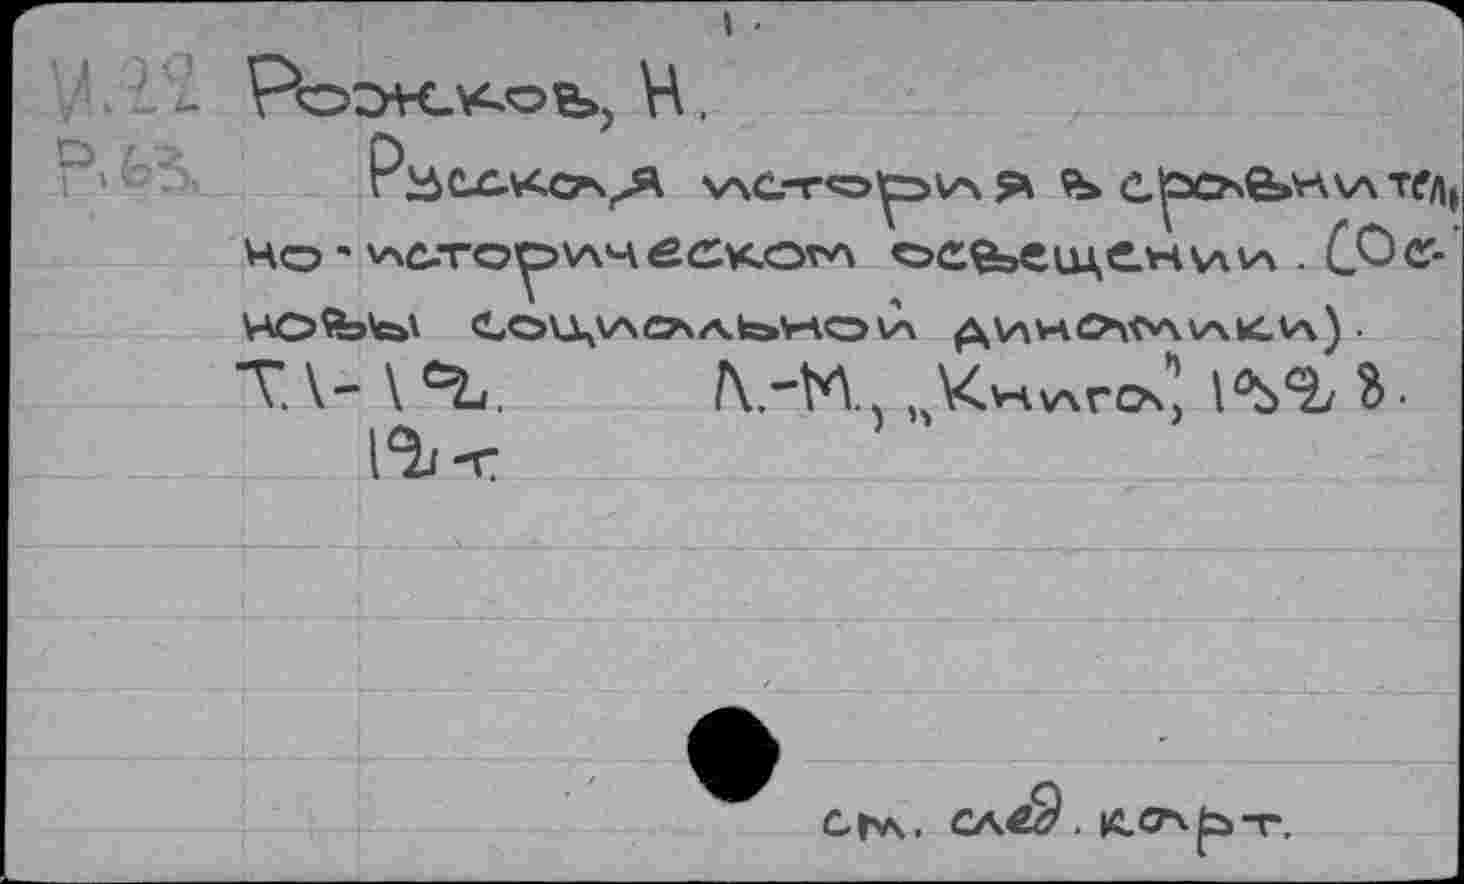 1.
И.22 Рожков, Н.
Р.63. Русская история в сравнитель
но-историческом освещении. (Ос-
новы социальной динамики).
Т.1-12. Л.-М., „Книга", 1928.
12 т.
см. след. карт.